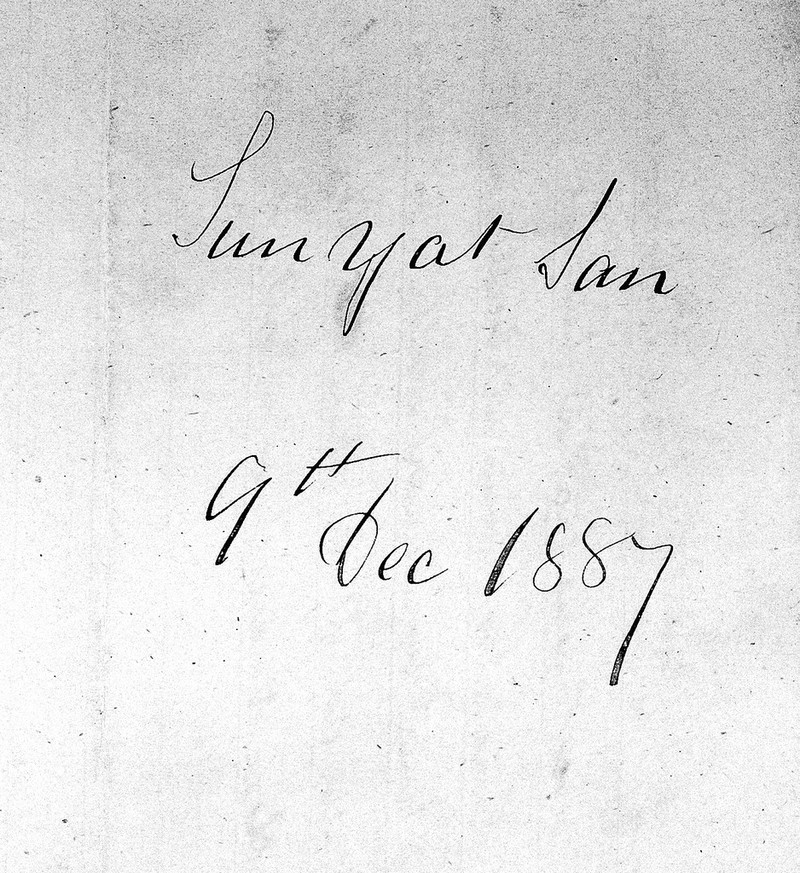 Sun Yat San
9th Dec 1887